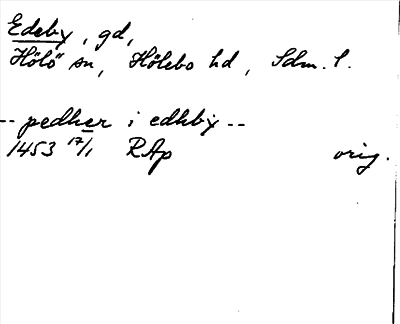 Edeby, gd,
Hölö sn, Hölebo hd, Sdm. l.
-- pedher i edhby --
1453 17/1 RAp orig.